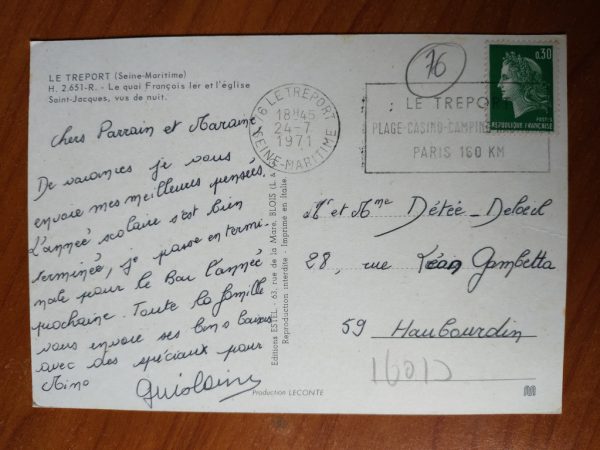 LE TREPORT (Seine-Maritime)
H. 2.651-R. - Le quai François Ier et l'église
Saint-Jacques, vus de nuit.
76
0,30
POSTES
REPUBLIQUE FRANÇAISE
76 LE TREPORT
18H45
24-7
1971
SEINE-MARITIME
LE TREPORT
PLAGE-CASINO-CAMPING
PARIS 180 KM
Chers Parrain et Marraine
De vacances je vous
envoie mes meilleures pensées.
L'année scolaire s'est bien
terminée, je passe en termi-
nale pour le Bac l'année
prochaine. Toute la famille
vous envoie ses bons baisers
avec des spéciaux pour
Mino
Guislaine
Editions ESTEL - 63, rue de la Mare, BLOIS (L. &
Reproduction interdite - Imprimé en Italie.
Mr et Mme Détée-Deloeil
28, rue Léon Gambetta
59 Haubourdin
Production LECONTE